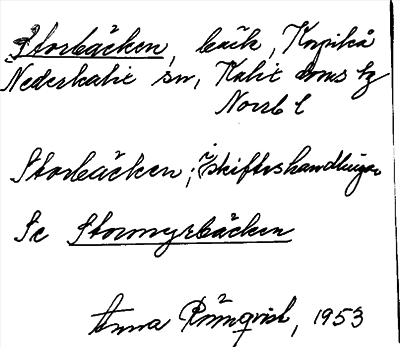 Storbäcken, bäck, Korpikå
Nederkalix sn, Kalix doms hg
Norrb l
Storbäcken; i skifteshandlingar
Se Stormyrbäcken
Anna Rönnqvist, 1953